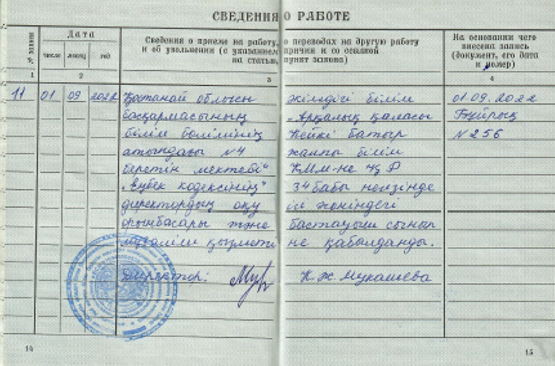 СВЕДЕНИЯ О РАБОТЕ
№ записи
Дата
число месяц год
Сведения о приеме на работу, о переводах на другую работу
и об увольнении (с указанием причин и со ссылкой
на статью, пункт закона)
На основании чего
внесена запись
(документ, его дата
и номер)
1 2 3 4
11 01 09 2022 Қостанай облысы әкімдігі білім 01.09.2022
басқармасының "Арқалық қаласы Бұйрық
білім бөлімінің Кейкі батыр №256
атындағы №4 жалпы білім
беретін мектебі" КММ-не ҚР
"Еңбек кодексінің" 34 бабы негізінде
директордың оқу ісі жөніндегі
орынбасары және бастауыш сынып
мұғалімі қызметі не қабылданды.
Директор: К.Ж.Мукашева
14 15